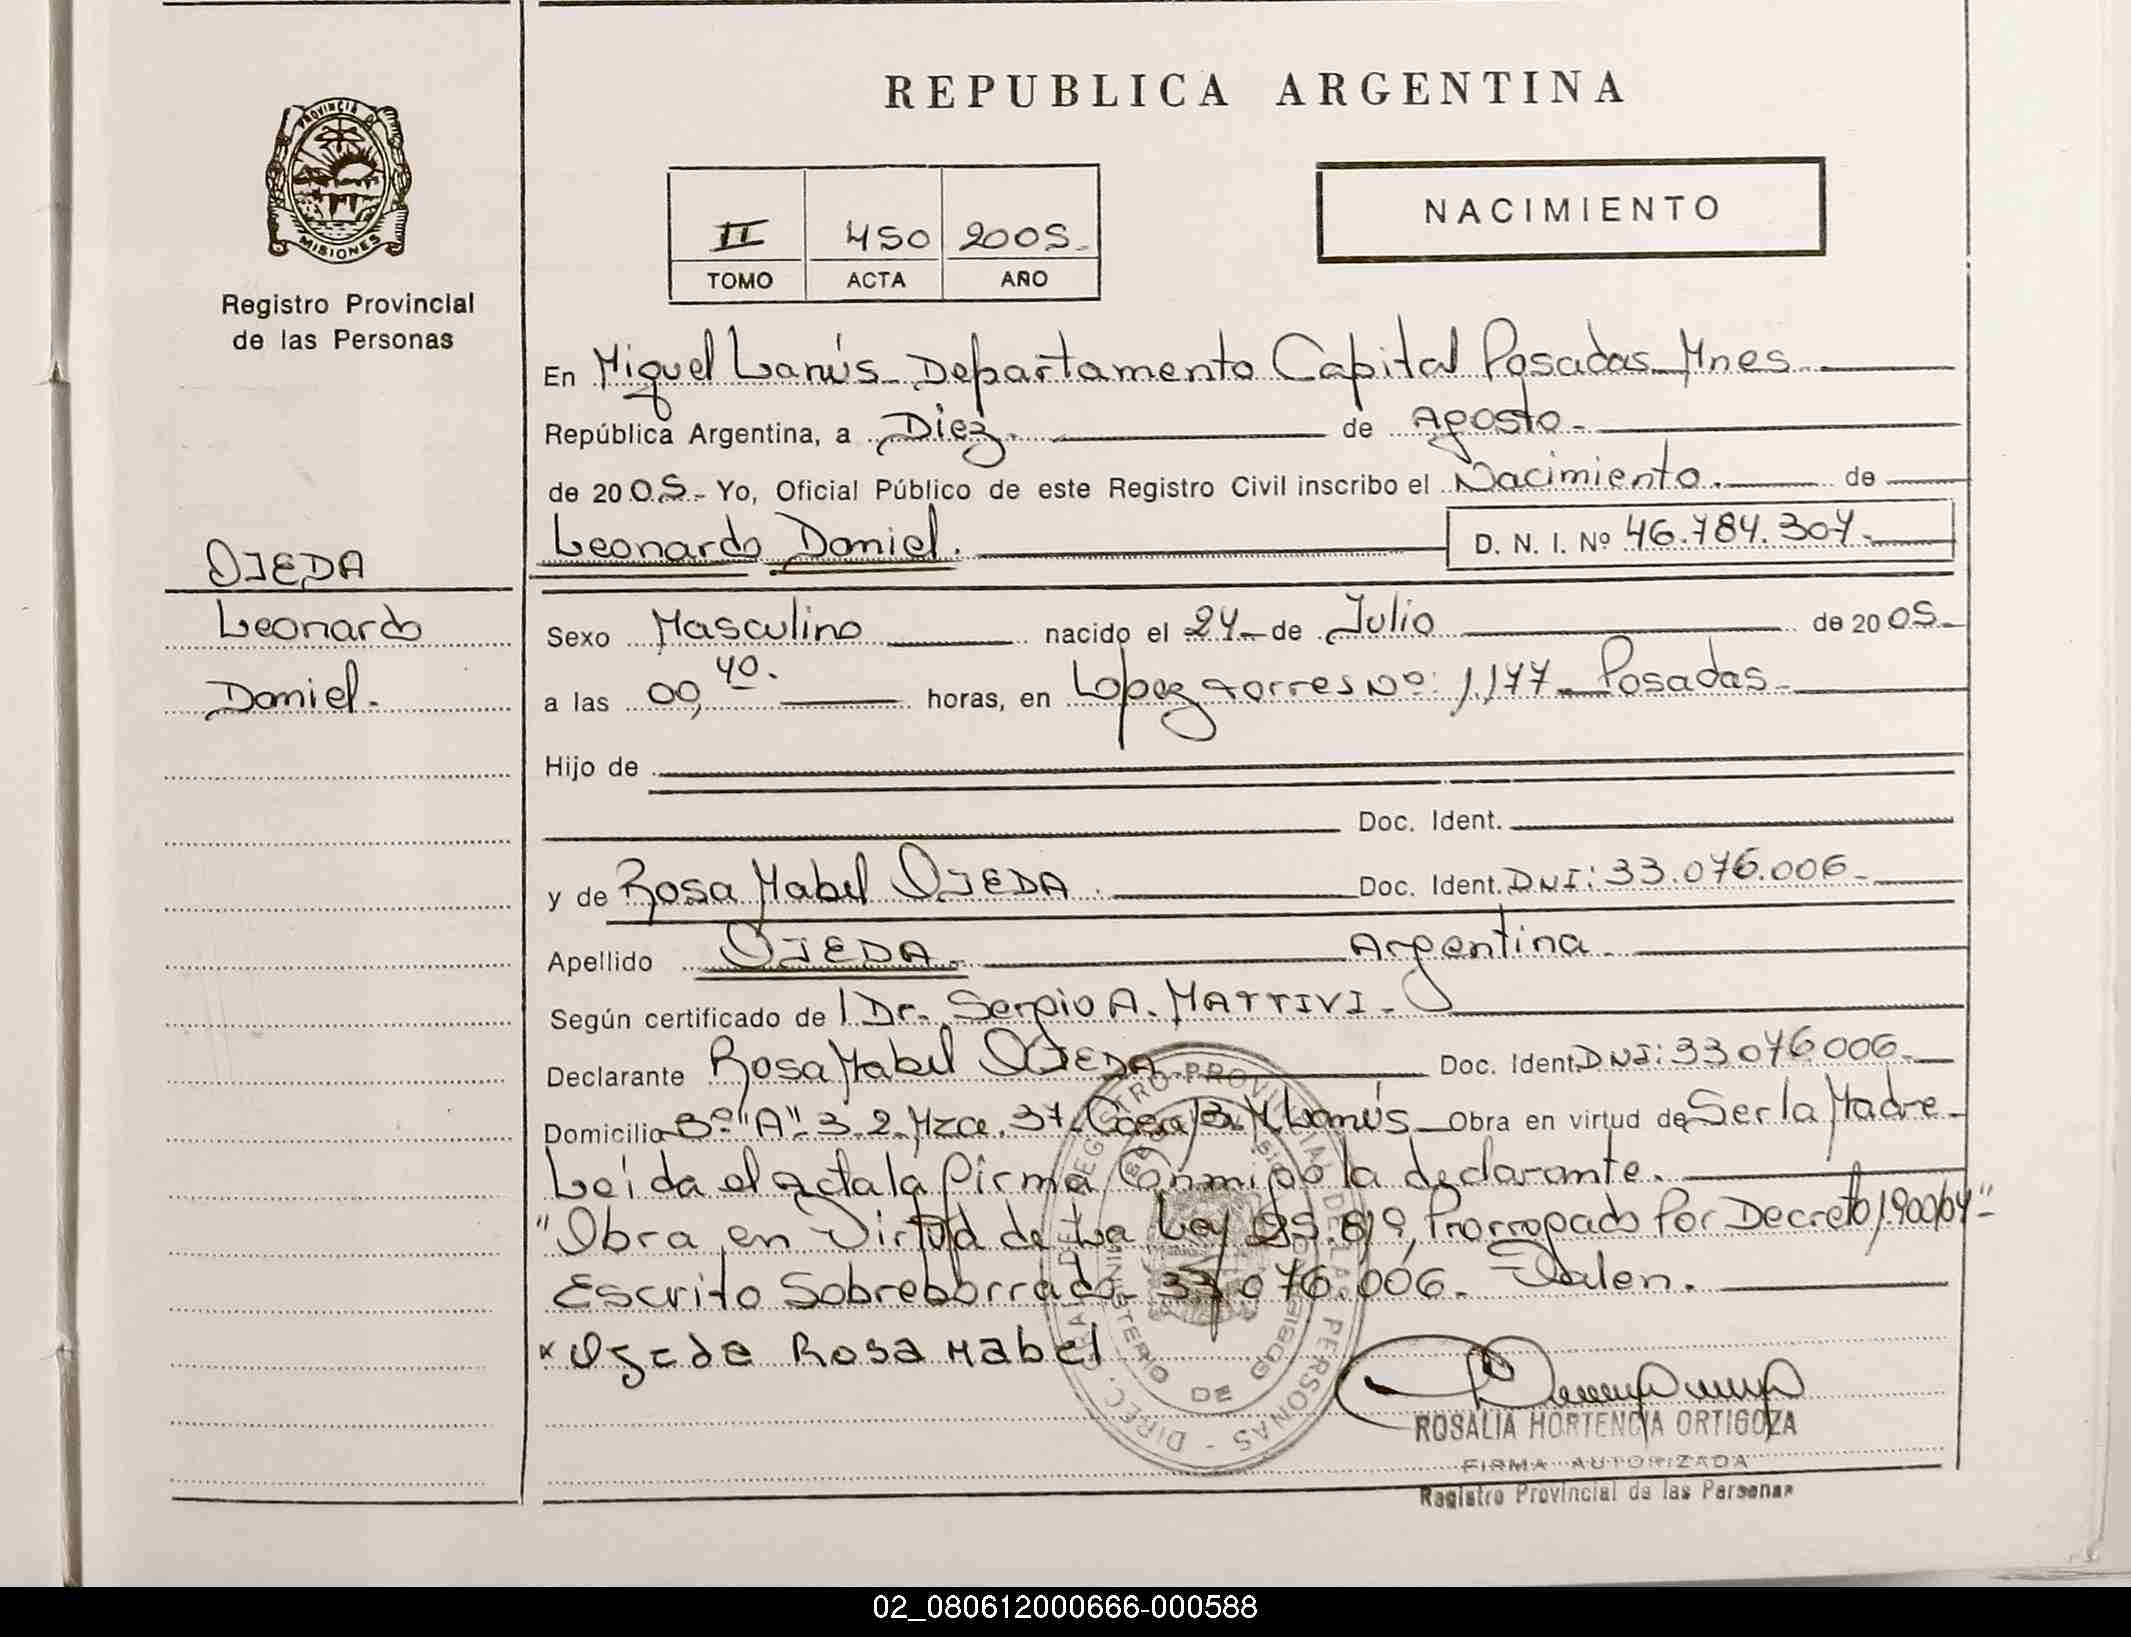 REPUBLICA ARGENTINA
PROVINCIA D
MISIONES
Registro Provincial
de las Personas
OJEDA
Leonardo
Daniel.-
II 450 2005.-
TOMO ACTA AÑO
NACIMIENTO
En Miguel Lanús Departamento Capital Posadas Mnes.
República Argentina, a Diez. de Agosto.-
de 2005.- Yo, Oficial Público de este Registro Civil inscribo el Nacimiento. de
Leonardo Daniel. D. N. I. Nº 46.784.307.-
Sexo Masculino nacido el 24 de Julio de 2005.-
a las 00,40. horas, en Lopez torres Nº: 1,177 Posadas.-
Hijo de
Doc. Ident.
y de Rosa Mabel OJEDA. Doc. Ident. DNI: 33.076.006.-
Apellido OJEDA.- Argentina.-
Según certificado de Dr. Sergio A. MATTIVI.-
Declarante Rosa Mabel OJEDA Doc. Ident. DNI: 33076006.-
Domicilio Bº "A" 3.2. Mza. 37. Casa 13. M. Lanús Obra en virtud de Ser la Madre.-
Leída el acta la firma Conmigo la declarante.
"Obra en Virtud de La Ley 25.819, Prorrogado Por Decreto 1900/04"-
Escrito Sobreborrado 33 076.006. Valen.
x Ogeda Rosa Mabel
ROSALIA HORTENCIA ORTIGOZA
FIRMA AUTORIZADA
Registro Provincial de las Personas
02_080612000666-000588